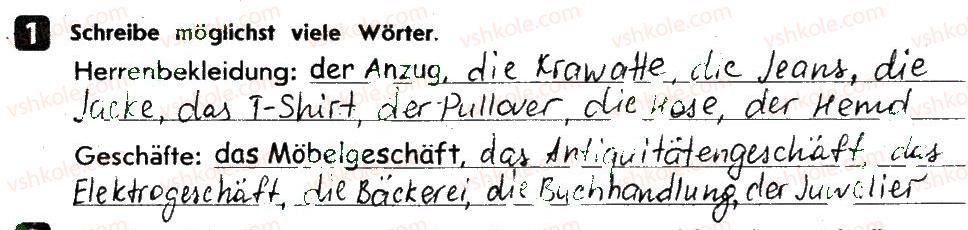 1 Schreibe möglichst viele Wörter.
Herrenbekleidung: der Anzug, die Krawatte, die Jeans, die
Jacke, das T-Shirt, der Pullover, die Hose, der Hemd
Geschäfte: das Möbelgeschäft, das Antiquitätengeschäft, das
Elektrogeschäft, die Bäckerei, die Buchhandlung, der Juwelier